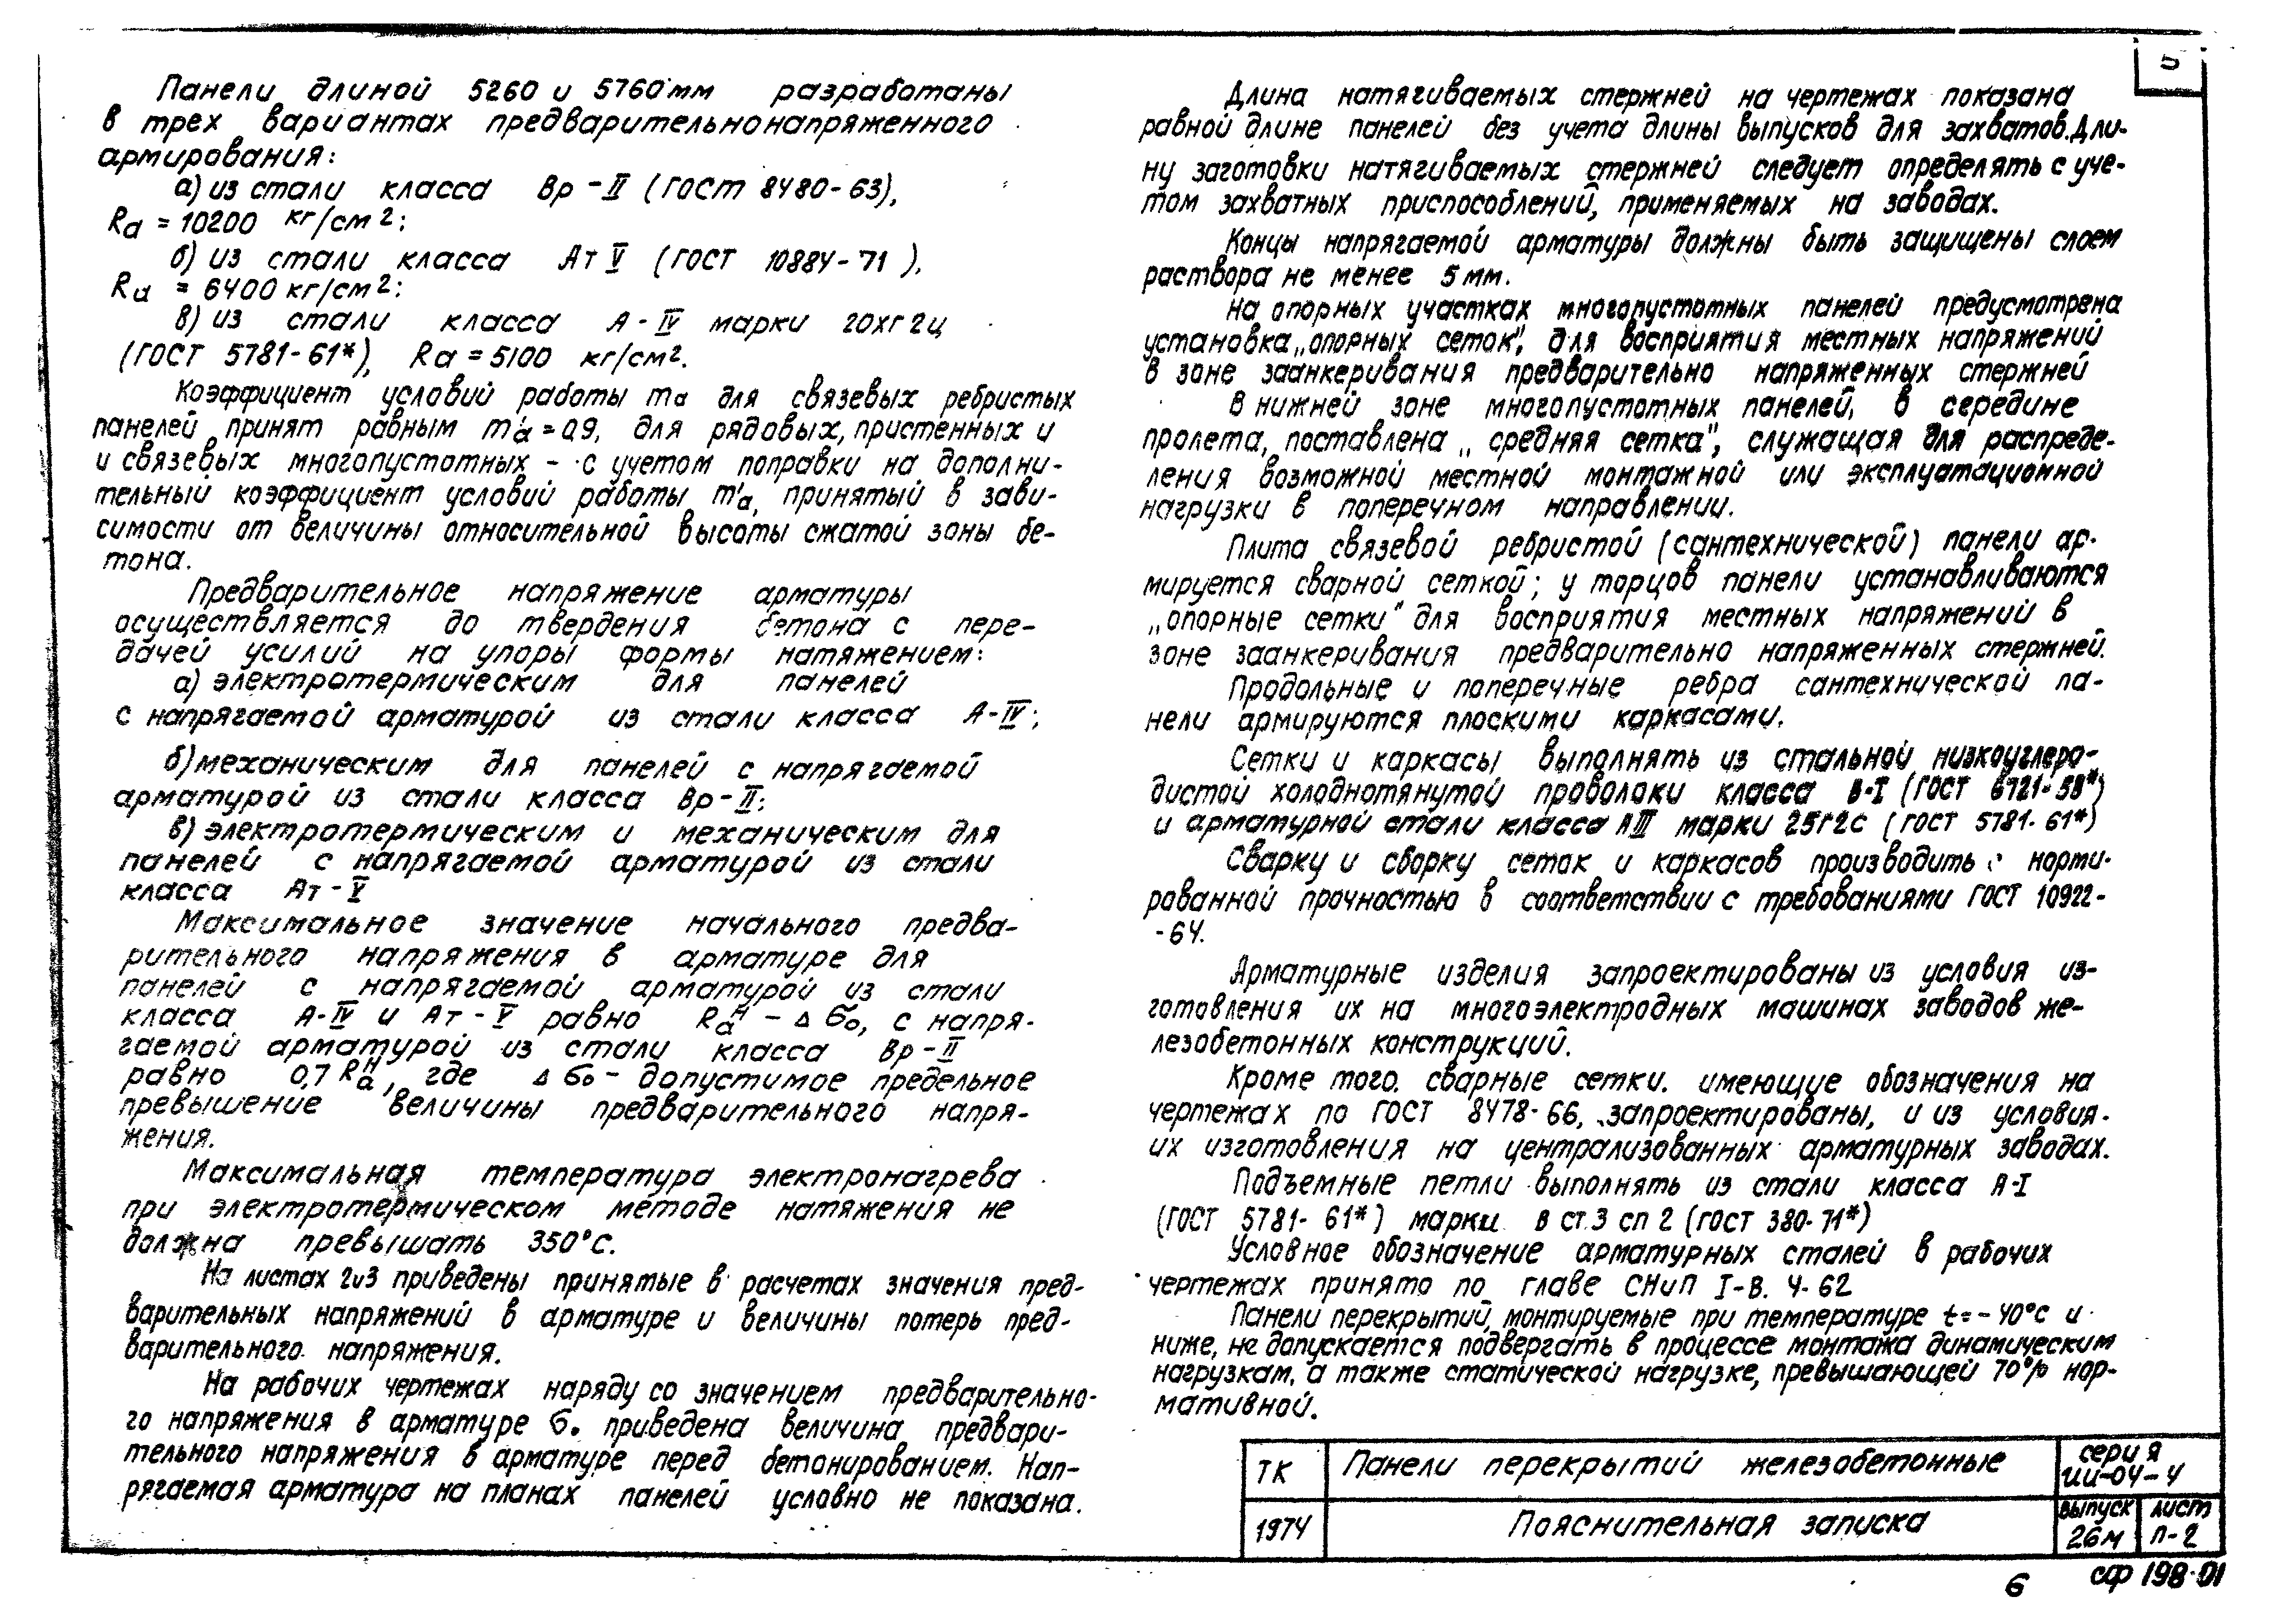 5
Панели длиной 5260 и 5760 мм разработаны
в трех вариантах предварительнонапряженного
армирования:
а) из стали класса Вр-II (ГОСТ 8480-63),
Rа = 10200 кг/см2;
б) из стали класса Ат V (ГОСТ 10884-71),
Rа = 6400 кг/см2;
в) из стали класса А-IV марки 20хг2ц
(ГОСТ 5781-61*), Rа = 5100 кг/см2.
Коэффициент условий работы mа для связевых ребристых
панелей принят равным m'а = 0,9, для рядовых, пристенных и
и связевых многопустотных - с учетом поправки на дополни-
тельный коэффициент условий работы m'а, принятый в зави-
симости от величины относительной высоты сжатой зоны бе-
тона.
Предварительное напряжение арматуры
осуществляется до твердения бетона с пере-
дачей усилий на упоры формы натяжением:
а) электротермическим для панелей
с напрягаемой арматурой из стали класса А-IV;
б) механическим для панелей с напрягаемой
арматурой из стали класса Вр-II;
в) электротермическим и механическим для
панелей с напрягаемой арматурой из стали
класса Ат-V
Максимальное значение начального предва-
рительного напряжения в арматуре для
панелей с напрягаемой арматурой из стали
класса А-IV и Ат-V равно Rаᴴ - Δ σ₀, с напря-
гаемой арматурой из стали класса Вр-II
равно 0,7 Rаᴴ, где Δ σ₀ - допустимое предельное
превышение величины предварительного напря-
жения.
Максимальная температура электронагрева
при электротермическом методе натяжения не
должна превышать 350°С.
На листах 2и3 приведены принятые в расчетах значения пред-
варительных напряжений в арматуре и величины потерь пред-
варительного напряжения.
На рабочих чертежах наряду со значением предварительно-
го напряжения в арматуре σ₀ приведена величина предвари-
тельного напряжения в арматуре перед бетонированием. Нап-
рягаемая арматура на планах панелей условно не показана.
Длина натягиваемых стержней на чертежах показана
равной длине панелей без учета длины выпусков для захватов. Дли-
ну заготовки натягиваемых стержней следует определять с уче-
том захватных приспособлений, применяемых на заводах.
Концы напрягаемой арматуры должны быть защищены слоем
раствора не менее 5 мм.
На опорных участках многопустотных панелей предусмотрена
установка „опорных сеток", для восприятия местных напряжений
в зоне заанкеривания предварительно напряженных стержней
В нижней зоне многопустотных панелей, в середине
пролета, поставлена „средняя сетка", служащая для распреде-
ления возможной местной монтажной или эксплуатационной
нагрузки в поперечном направлении.
Плита связевой ребристой (сантехнической) панели ар-
мируется сварной сеткой; у торцов панели устанавливаются
„опорные сетки" для восприятия местных напряжений в
зоне заанкеривания предварительно напряженных стержней.
Продольные и поперечные ребра сантехнической па-
нели армируются плоскими каркасами.
Сетки и каркасы выполнять из стальной низкоуглеро-
дистой холоднотянутой проволоки класса В-I (ГОСТ 6721-58*)
и арматурной стали класса АIII марки 25Г2С (ГОСТ 5781-61*)
Сварку и сборку сеток и каркасов производить с норми-
рованной прочностью в соответствии с требованиями ГОСТ 10922-
-64.
Арматурные изделия запроектированы из условия из-
готовления их на многоэлектродных машинах заводов же-
лезобетонных конструкций.
Кроме того, сварные сетки, имеющие обозначения на
чертежах по ГОСТ 8478-66, запроектированы, и из условия
их изготовления на централизованных арматурных заводах.
Подъемные петли выполнять из стали класса А-I
(ГОСТ 5781-61*) марки В ст.3 сп 2 (ГОСТ 380-71*)
Условное обозначение арматурных сталей в рабочих
чертежах принято по главе СНиП I-В. 4-62
Панели перекрытий, монтируемые при температуре t=-40°С и
ниже, не допускается подвергать в процессе монтажа динамическим
нагрузкам, а также статической нагрузке, превышающей 70% нор-
мативной.
ТК Панели перекрытий железобетонные серия ИИ-04-4
1974 Пояснительная записка выпуск 26м лист П-2
6 сф 198-01